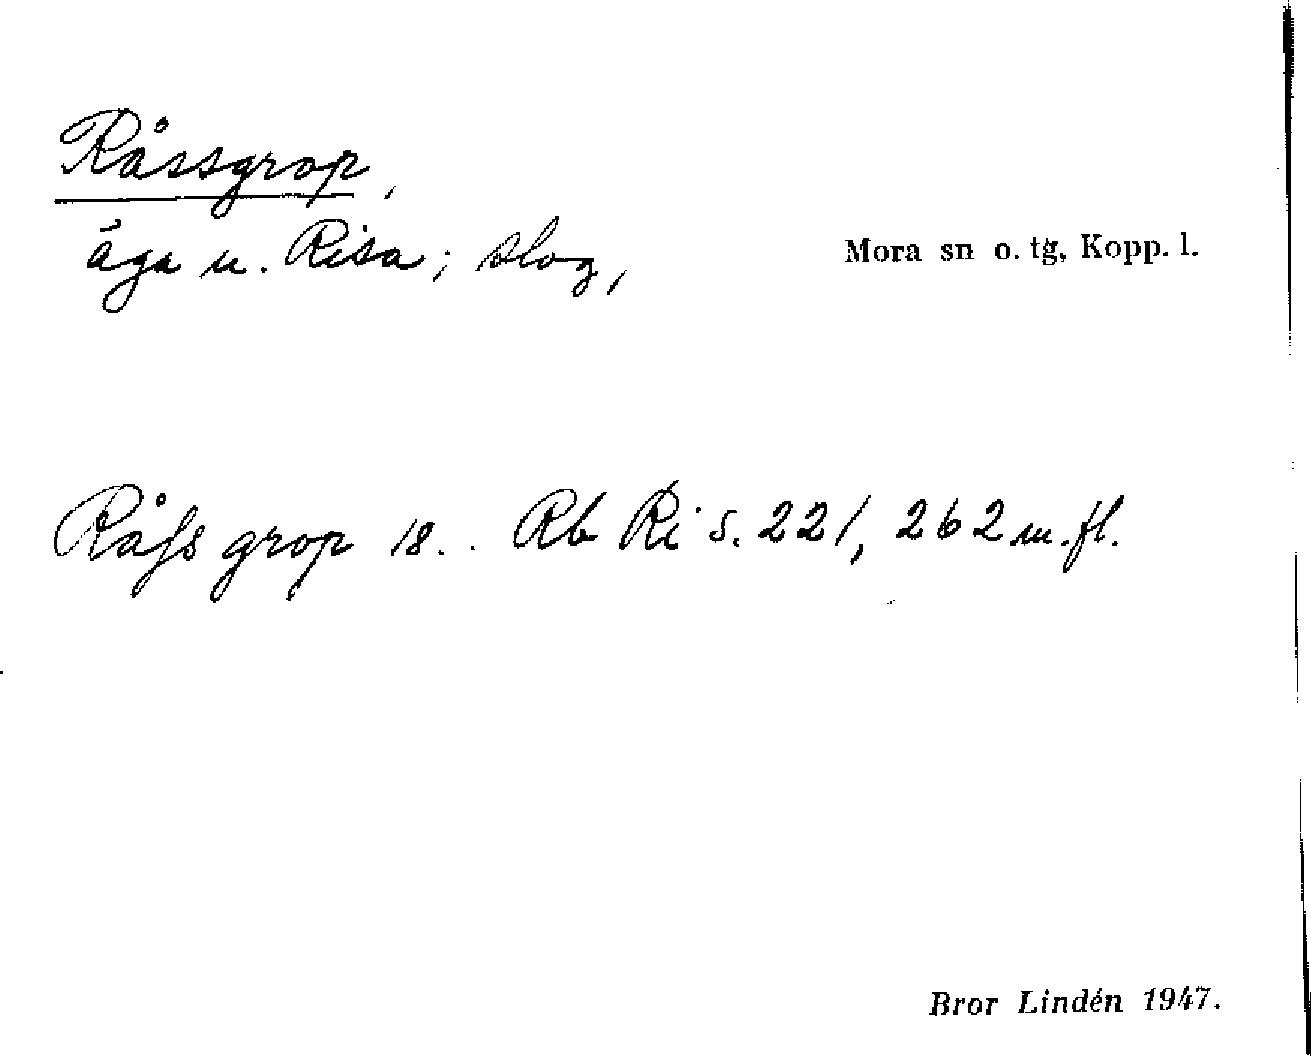 Råssgrop,
äga u. Risa; slog,
Mora sn o. tg, Kopp. l.
Råſs grop 18.. Rb Ri s. 221, 262 m. fl.
Bror Lindén 1947.